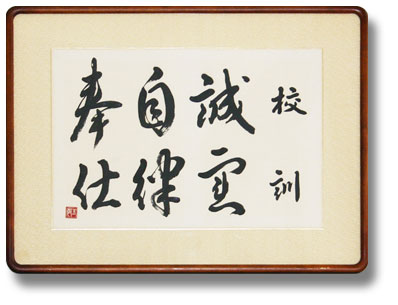 校訓
誠実
自律
奉仕